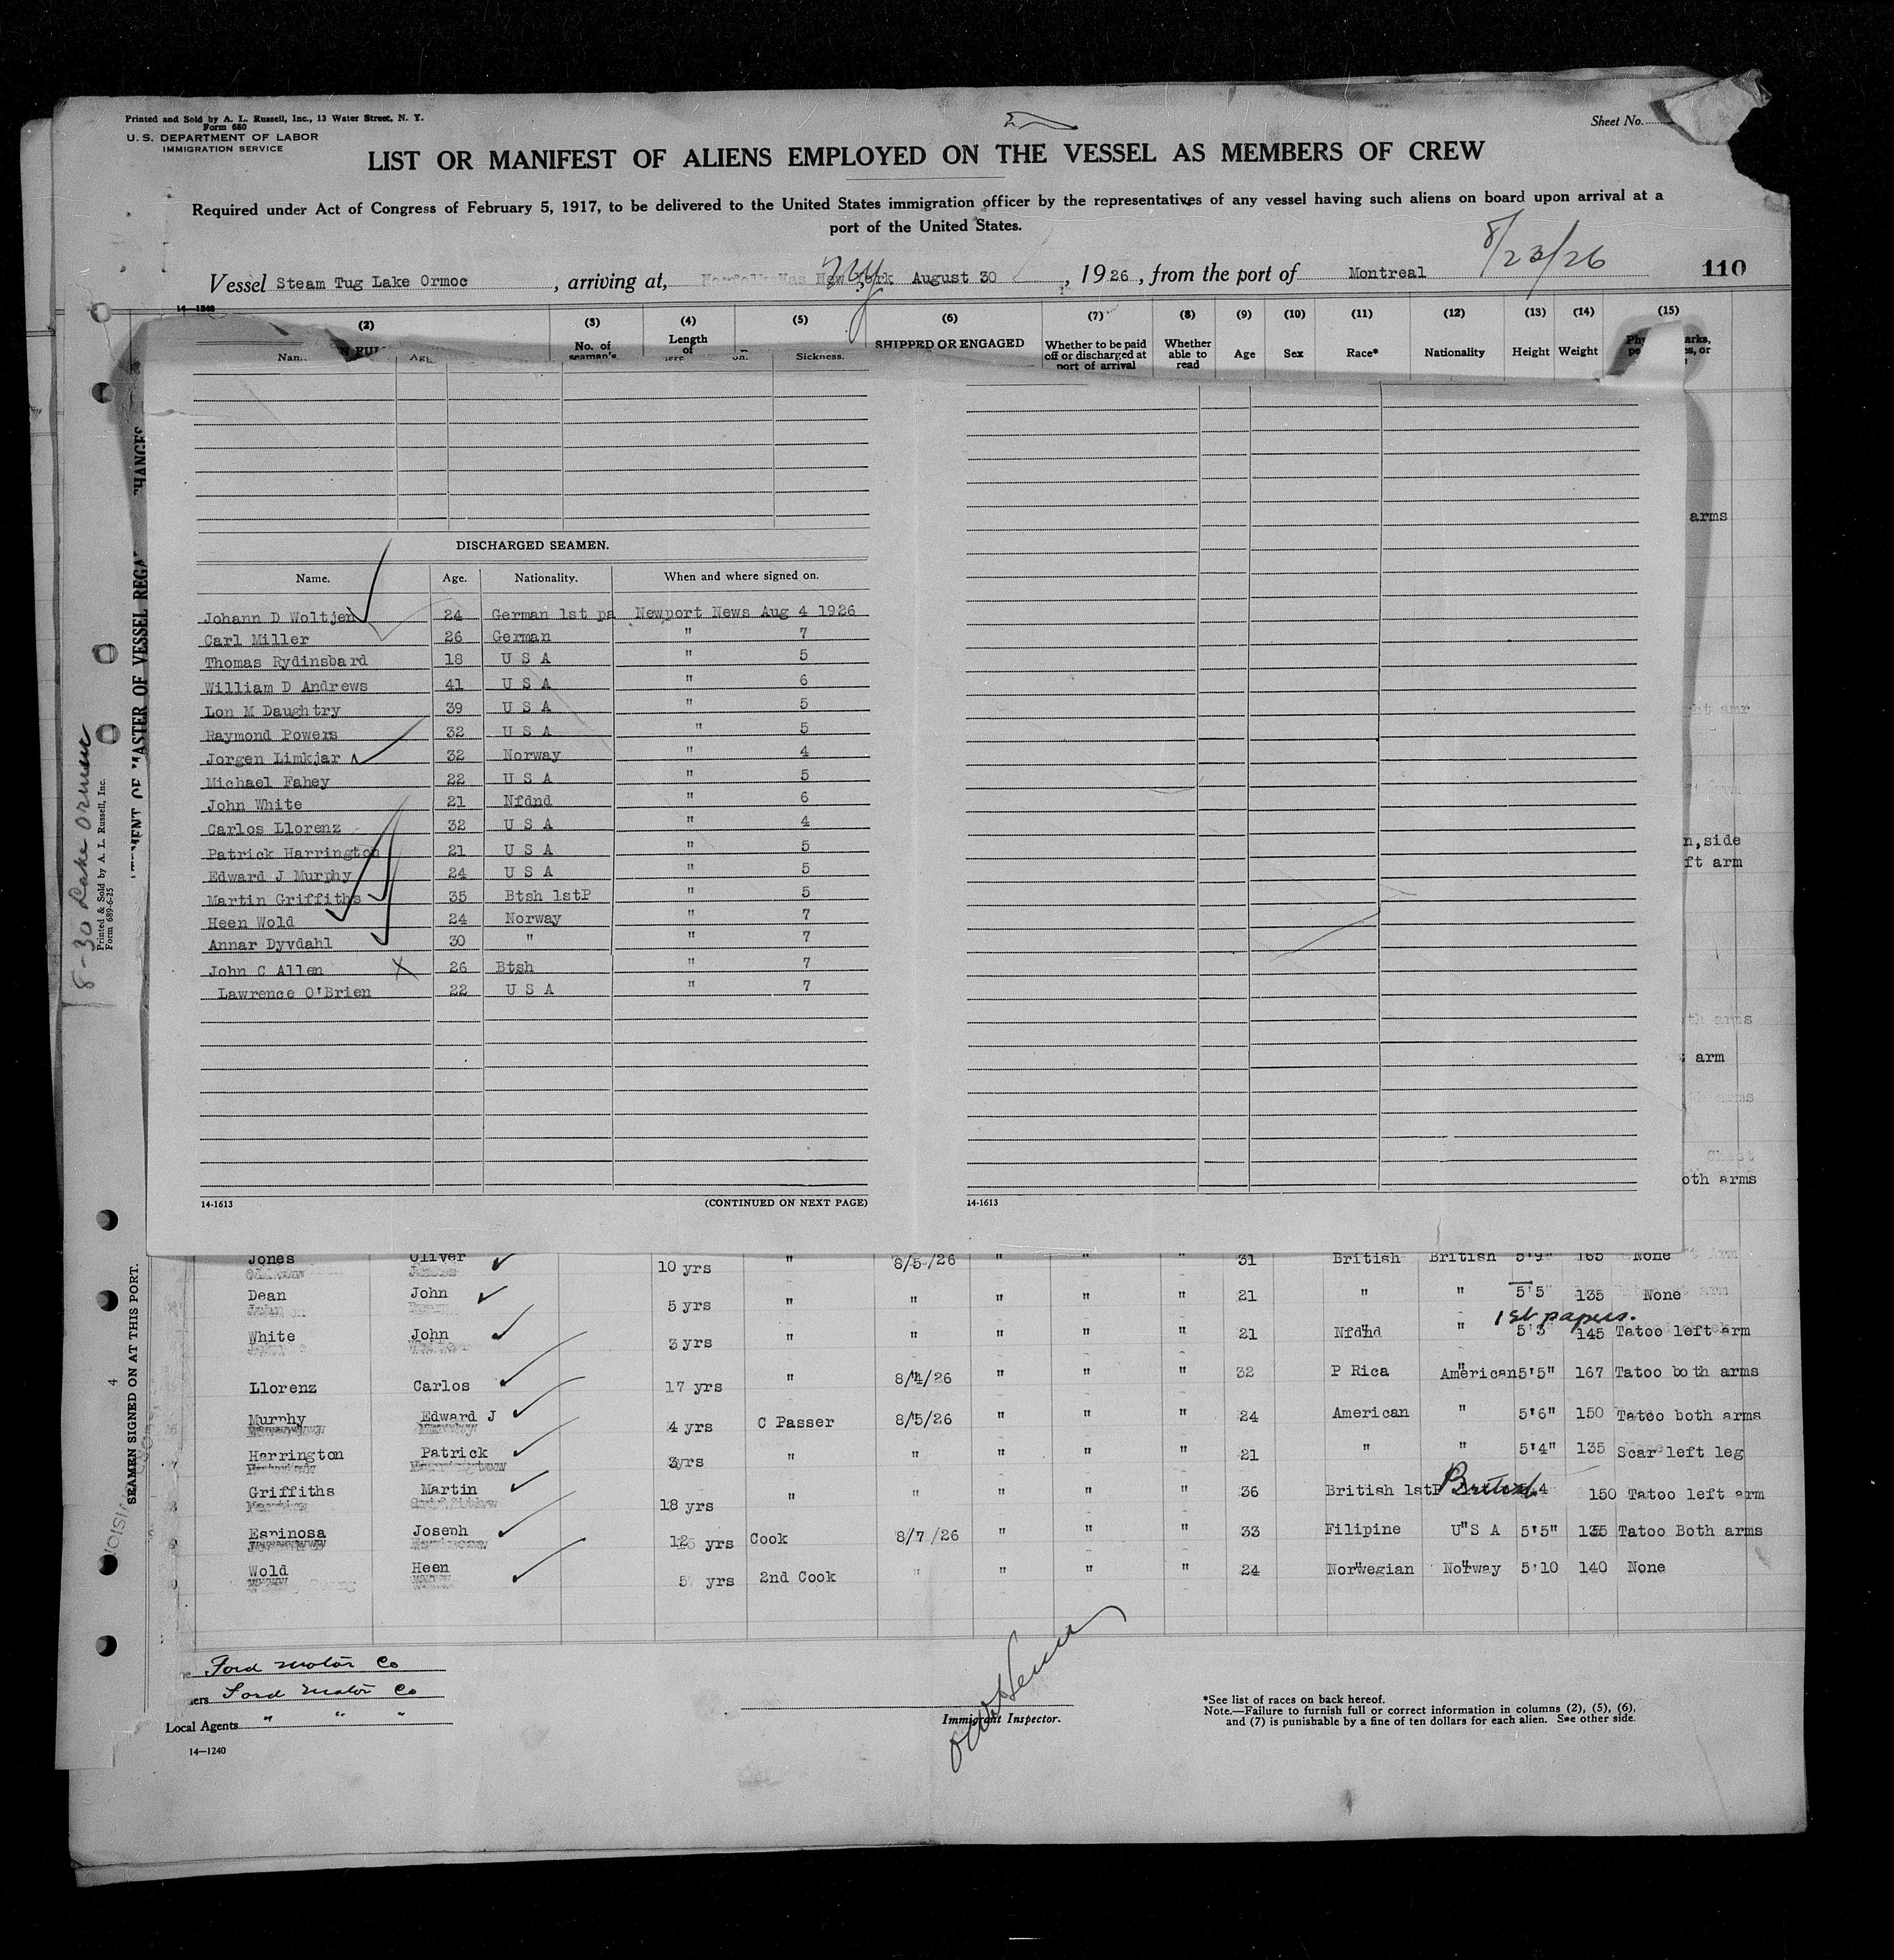 Printed and Sold by A. L. Russell, Inc., 13 Water Street, N. Y.
Form 680
U. S. DEPARTMENT OF LABOR
IMMIGRATION SERVICE
Sheet No.
LIST OR MANIFEST OF ALIENS EMPLOYED ON THE VESSEL AS MEMBERS OF CREW
Required under Act of Congress of February 5, 1917, to be delivered to the United States immigration officer by the representatives of any vessel having such aliens on board upon arrival at a
port of the United States.
8/23/26
Vessel Steam Tug Lake Ormoc, arriving at, New York August 30, 1926, from the port of Montreal
110
(2) (3) (4) (5) (6) (7) (8) (9) (10) (11) (12) (13) (14) (15)
No. of seaman's
Length of
Sickness.
SHIPPED OR ENGAGED
Whether to be paid off or discharged at port of arrival
Whether able to read
Age Sex Race* Nationality Height Weight
DISCHARGED SEAMEN.
Name. Age. Nationality. When and where signed on.
Johann D Woltjen 24 German 1st pa Newport News Aug 4 1926
Carl Miller 26 German " 7
Thomas Rydinsbard 18 U S A " 5
William D Andrews 41 U S A " 6
Lon M Daughtry 39 U S A " 5
Raymond Powers 32 U S A " 5
Jorgen Limkjar 32 Norway " 4
Michael Fahey 22 U S A " 5
John White 21 Nfdnd " 6
Carlos Llorenz 32 U S A " 4
Patrick Harrington 21 U S A " 5
Edward J Murphy 24 U S A " 5
Martin Griffiths 35 Btsh 1stP " 5
Heen Wold 24 Norway " 7
Annar Dyvdahl 30 " " 7
John C Allen X 26 Btsh " 7
Lawrence O'Brien 22 U S A " 7
14-1613 (CONTINUED ON NEXT PAGE) 14-1613
arms
n,side
ft arm
arm
oth arms
8-30 Lake Ormoc
Printed & Sold by A. L. Russell, Inc.
Form 689-6-25
MASTER OF VESSEL
SEAMEN SIGNED ON AT THIS PORT.
4
Jones Oliver 10 yrs " 8/5/26 " " " 31 British British 5'9" 165 None
Dean John 5 yrs " " " " " 21 " " 5'5 135 None
1st papers.
White John 3 yrs " " " " " 21 Nfdnd " 5'3" 145 Tatoo left arm
Llorenz Carlos 17 yrs " 8/4/26 " " " 32 P Rica American 5'5" 167 Tatoo both arms
Murphy Edward J 4 yrs C Passer 8/5/26 " " " 24 American " 5'6" 150 Tatoo both arms
Harrington Patrick 3yrs " " " " " 21 " " 5'4" 135 Scar left leg
Griffiths Martin 18 yrs " " " " " 36 British 1stP British 4 150 Tatoo left arm
Espinosa Joseph 12 yrs Cook 8/7/26 " " " 33 Filipine U S A 5'5" 135 Tatoo Both arms
Wold Heen 5 yrs 2nd Cook " " " " 24 Norwegian Norway 5'10 140 None
Ford Motor Co
Ford Motor Co
Local Agents " " "
14—1240
Immigrant Inspector.
*See list of races on back hereof.
Note.—Failure to furnish full or correct information in columns (2), (5), (6),
and (7) is punishable by a fine of ten dollars for each alien. See other side.